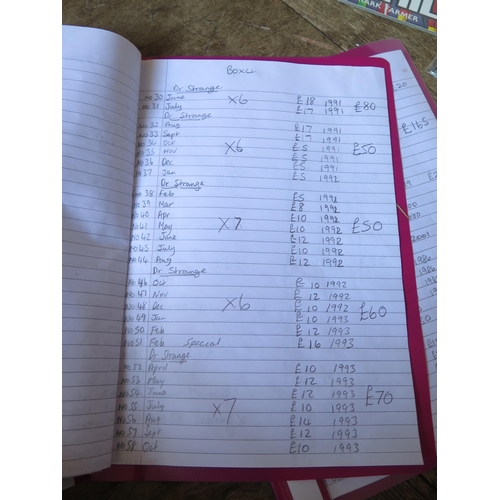 MARK FARMER
Box 4
Dr Strange
no 30 June £18 1991
no 31 July X6 £17 1991 £80
Dr Strange
No 32 Aug £17 1991
No 33 Sept £17 1991
No 34 Oct X6 £5 1991 £50
No 35 Nov £5 1991
No 36 Dec £5 1991
No 37 Jan £5 1992
Dr Strange
No 38 Feb £5 1992
No 39 Mar £8 1992
No 40 Apr £10 1992
No 41 May X7 £10 1992 £50
No 42 June £12 1992
No 43 July £10 1992
No 44 Aug £12 1992
Dr Strange
No 46 Oct £10 1992
No 47 Nov £12 1992
No 48 Dec X6 £10 1992 £60
No 49 Jan £10 1993
No 50 Feb £12 1993
No 51 Feb Special £16 1993
Dr Strange
No 52 April £10 1993
No 53 May £12 1993
No 54 June £12 1993 £70
No 55 July X7 £10 1993
No 56 Aug £14 1993
No 57 Sept £12 1993
No 58 Oct £10 1993
£165